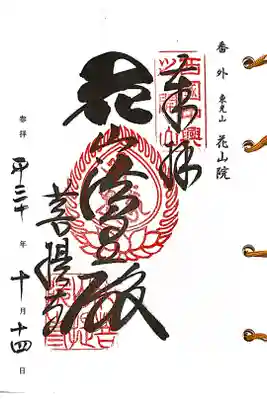 番外 東光山 花山院
奉拝
花山法皇殿
菩提寺
参拝 平三十年十月十四日